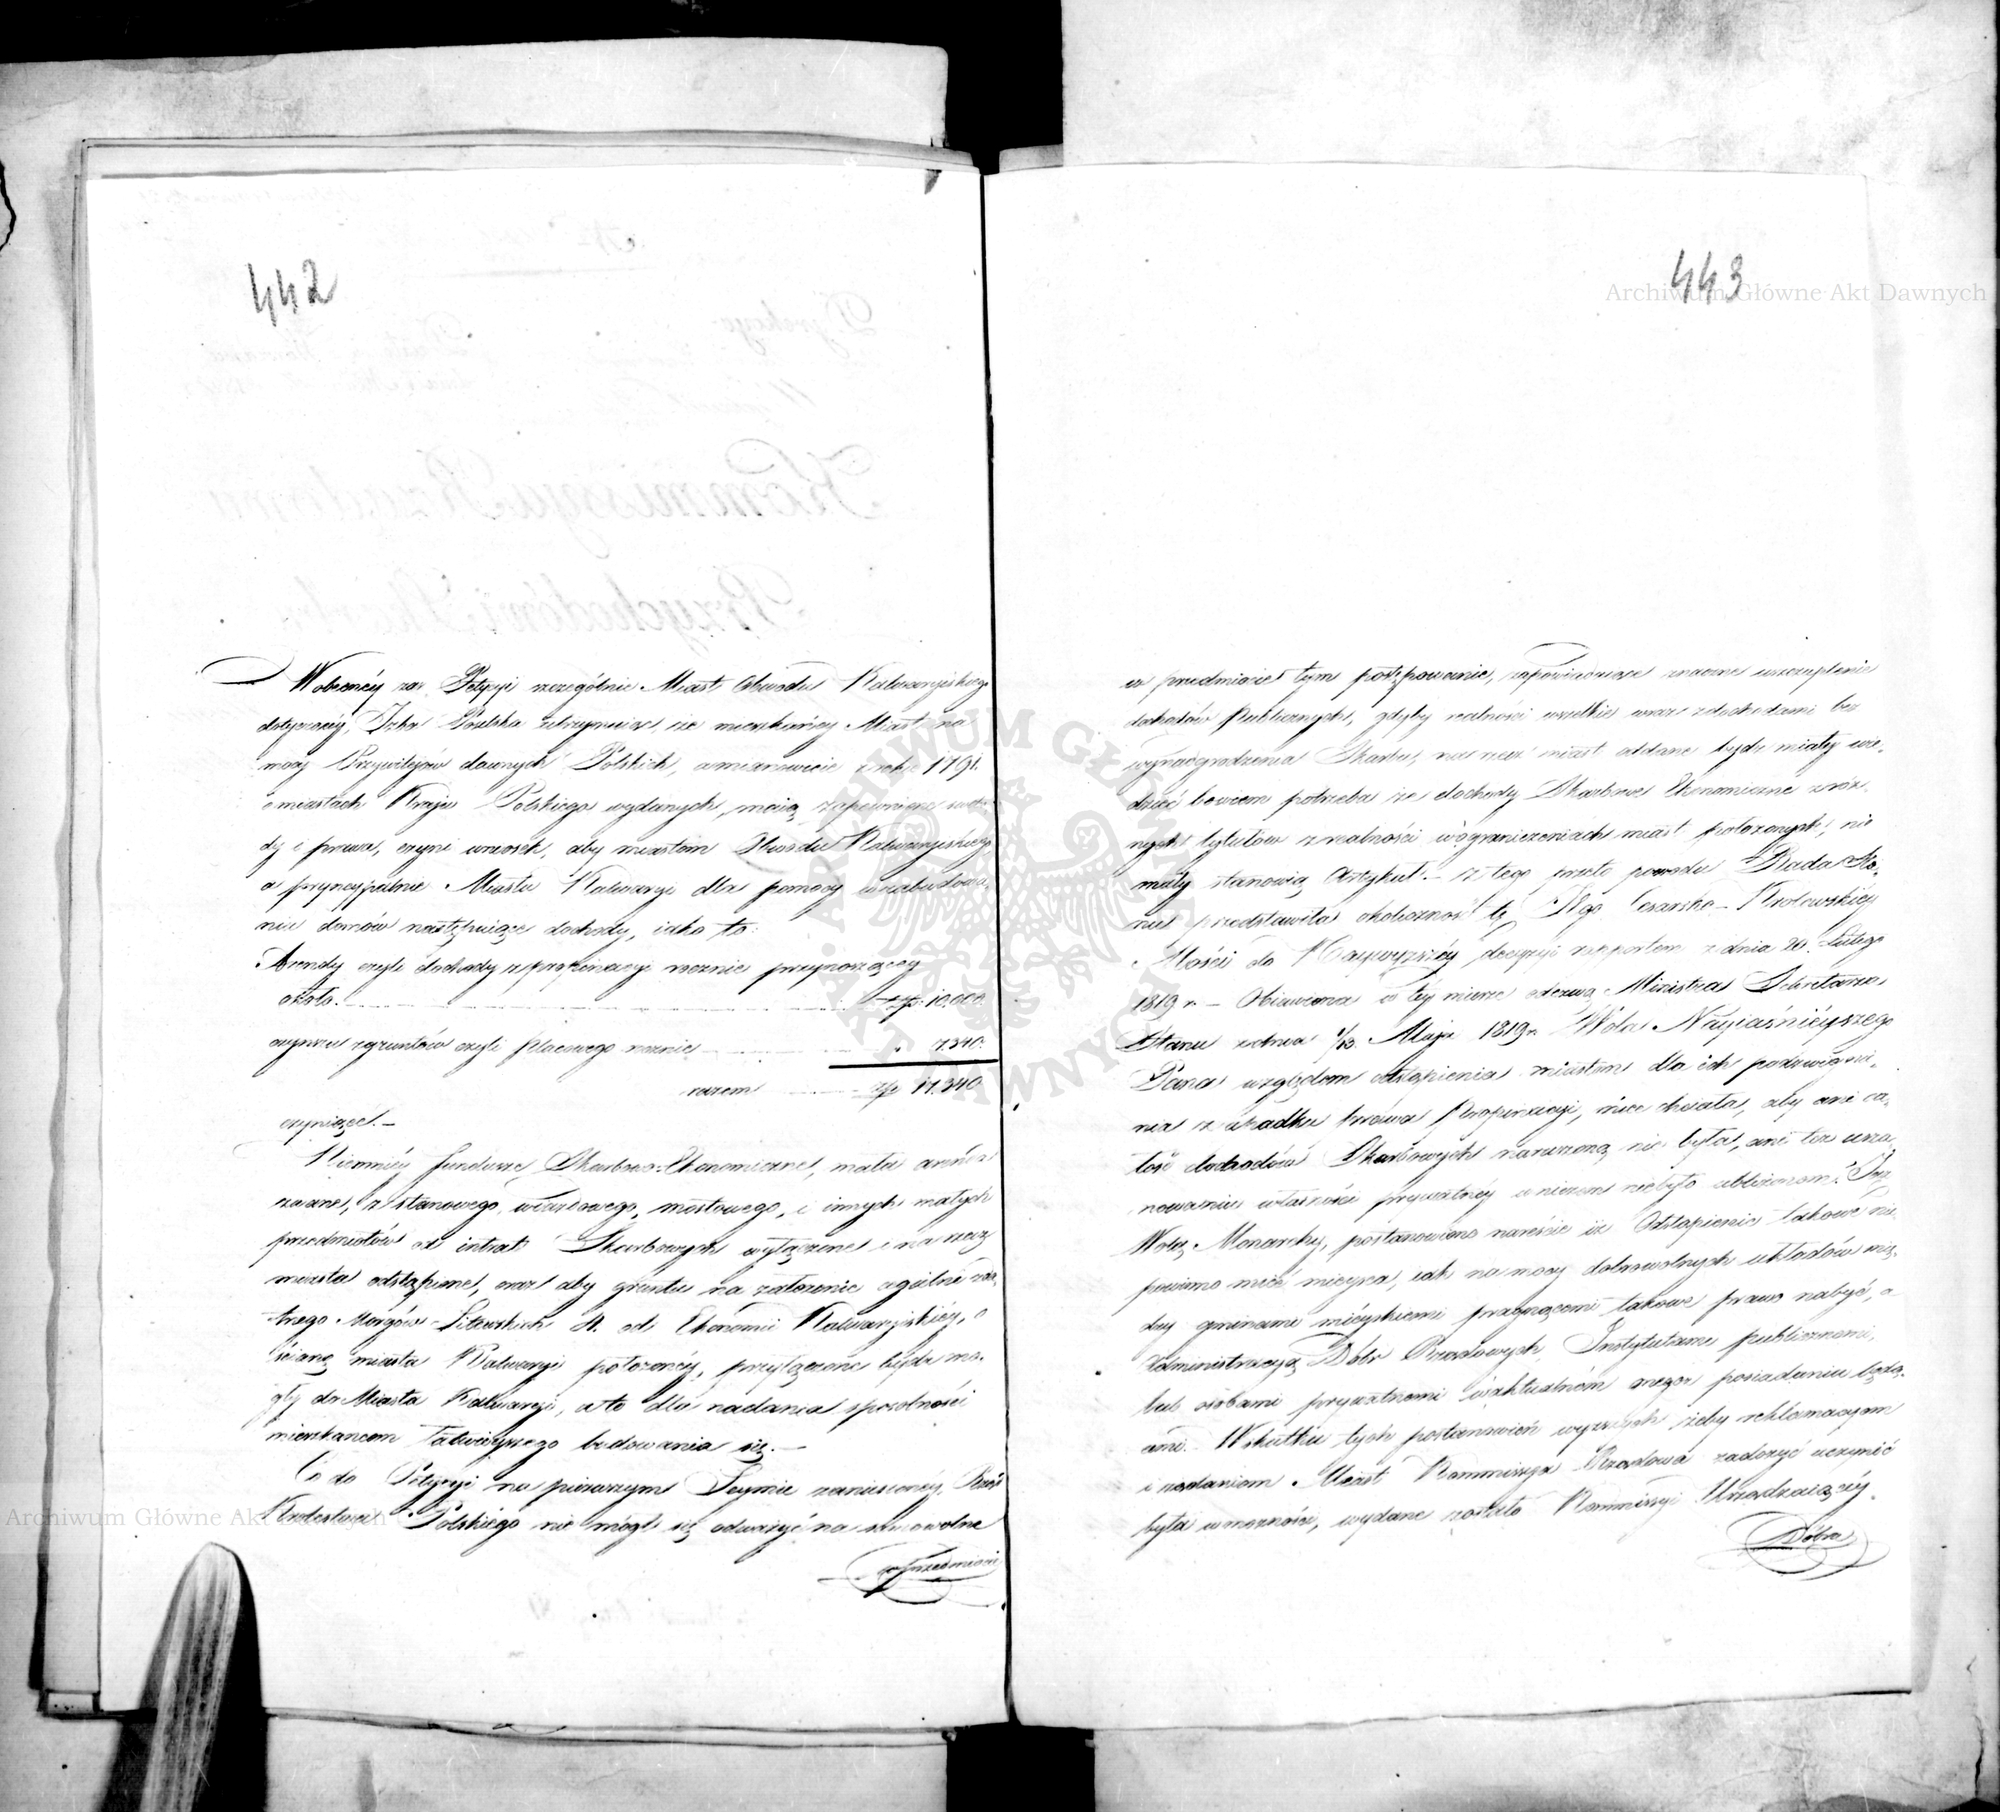 442
Woboczéy zas Petycyi szczególnie Miast Obwodu Kalwaryiskiego
dotyczącéy, Izba Poselska utrzymuiąc, że mieszkańcy Miast na
mocy Przywilejów dawnych Polskich, a mianowicie z roku 1791.
o miastach Kraju Polskiego wydanych, mają zapewnione swobo-
dy i prawa, czyni wniosek, aby miastom Obwodu Kalwaryiskiego,
a pryncypalnie Miastu Kalwaryi dla pomocy w zabudowa-
niu domów następuiące dochody, iako to:
Arendy czyli dochody z propinacyi rocznie przynoszącey
około. złp. 10.000.
czynszu z gruntów czyli placowego rocznie „ 7.340.
razem złp 17.340.
czyniące.—
Niemniéy fundusze Skarbowo-Ekonomiczne, mała arenda
zwane, z stanowego, wiazdowego, mostowego, i innych małych
przedmiotów od intrat Skarbowych wyłączone i na rzecz
miasta odstąpione, oraz aby gruntu na założenie ogólne
Morgów Litewskich od Ekonomii Kalwaryiskiéy, o
ścianę miasta Kalwaryi położonéy, przyłączone być mo-
gły do Miasta Kalwaryi, a to dla nadania sposobności
mieszkańcom łatwieyszego budowania się.—
Co do Petycyi na pierwszym Seymie zaniesionéy, Rząd
Królestwa Polskiego nie mógł się odważyć na samowolne
w przedmiocie
443
w przedmiocie tym postępowanie, zapowiadaiące znaczne uszczuplenie
dochodów Publicznych, gdyby realności wszelkie wraz z dochodami bez
wynadgrodzenia Skarbu, na rzecz miast oddane bydź miały wie-
dzieć bowiem potrzeba że dochody Skarbowe Ekonomiczne z róż-
nych tytułów z realności w ograniczeniach miast położonych, nie
mały stanowią Artykuł.— z tego przeto powodu Rada Sta-
nu przedstawiła okoliczność tę Jego Cesarsko-Królewskiéy
Mości do Naywyższéy decyzyi rapportem z dnia 20. Lutego
1819 r.— Obiawiona w téy mierze odezwą Ministra Sekretarza
Stanu z dnia 1/13. Maja 1819 r. Wola Nayiaśnieyszego
Pana względem odstąpienia miastom dla ich podzwignie-
nia z upadku prawa Propinacyi, mieć chciała, aby ani ca-
łość dochodów Skarbowych naruszoną nie była, ani też usza-
nowaniu własności prywatnéy w niczem nie było ubliżonem. Tąż
Wolą Monarchy, postanowiono nareście iż Odstąpienie takowe nie
powinno mieć mieysca, iak na mocy dobrowolnych układów mię-
dzy gminami mieyskiemi pragnącemi takowe prawo nabyć, a
Administracyą Dóbr Rządowych, Instytutami publicznemi,
lub osobami prywatnemi w aktualném onego posiadaniu będą-
cemi. Wskutku tych postanowień wyższych żeby reklamacyom
i żądaniom Miast Kommissya Rządowa zadosyć uczynić
była w możności, wydane zostało Kommissyi Urządzaiącéy
Dobra
Archiwum Główne Akt Dawnych
Archiwum Główne Akt Dawnych
ARCHIWUM GŁÓWNE AKT DAWNYCH